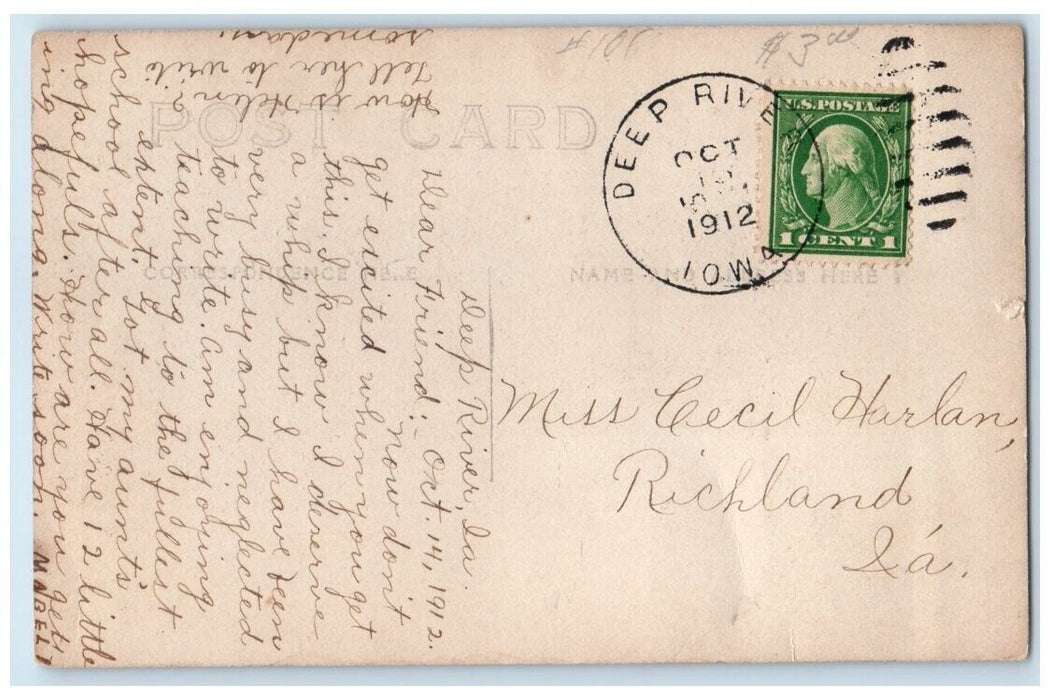 Deep River, Ia.
Oct. 14, 1912.
Dear Friend:-
Now don't
get excited when you get
this. I know I deserve
a whip but I have been
very busy and neglected
to write. Am enjoying
teaching to the fullest
extent. Got my aunt's
school after all. Have 12 little
hopefuls. How are you get-
ing along. Write soon. MABEL
How is Helen
Tell her to write
someday.
POST CARD
CORRESPONDENCE HERE
NAME AND ADDRESS HERE
$3.00
DEEP RIVER
OCT
1912
IOWA
U.S. POSTAGE
1 CENT 1
Miss Cecil Harlan,
Richland
Ia.